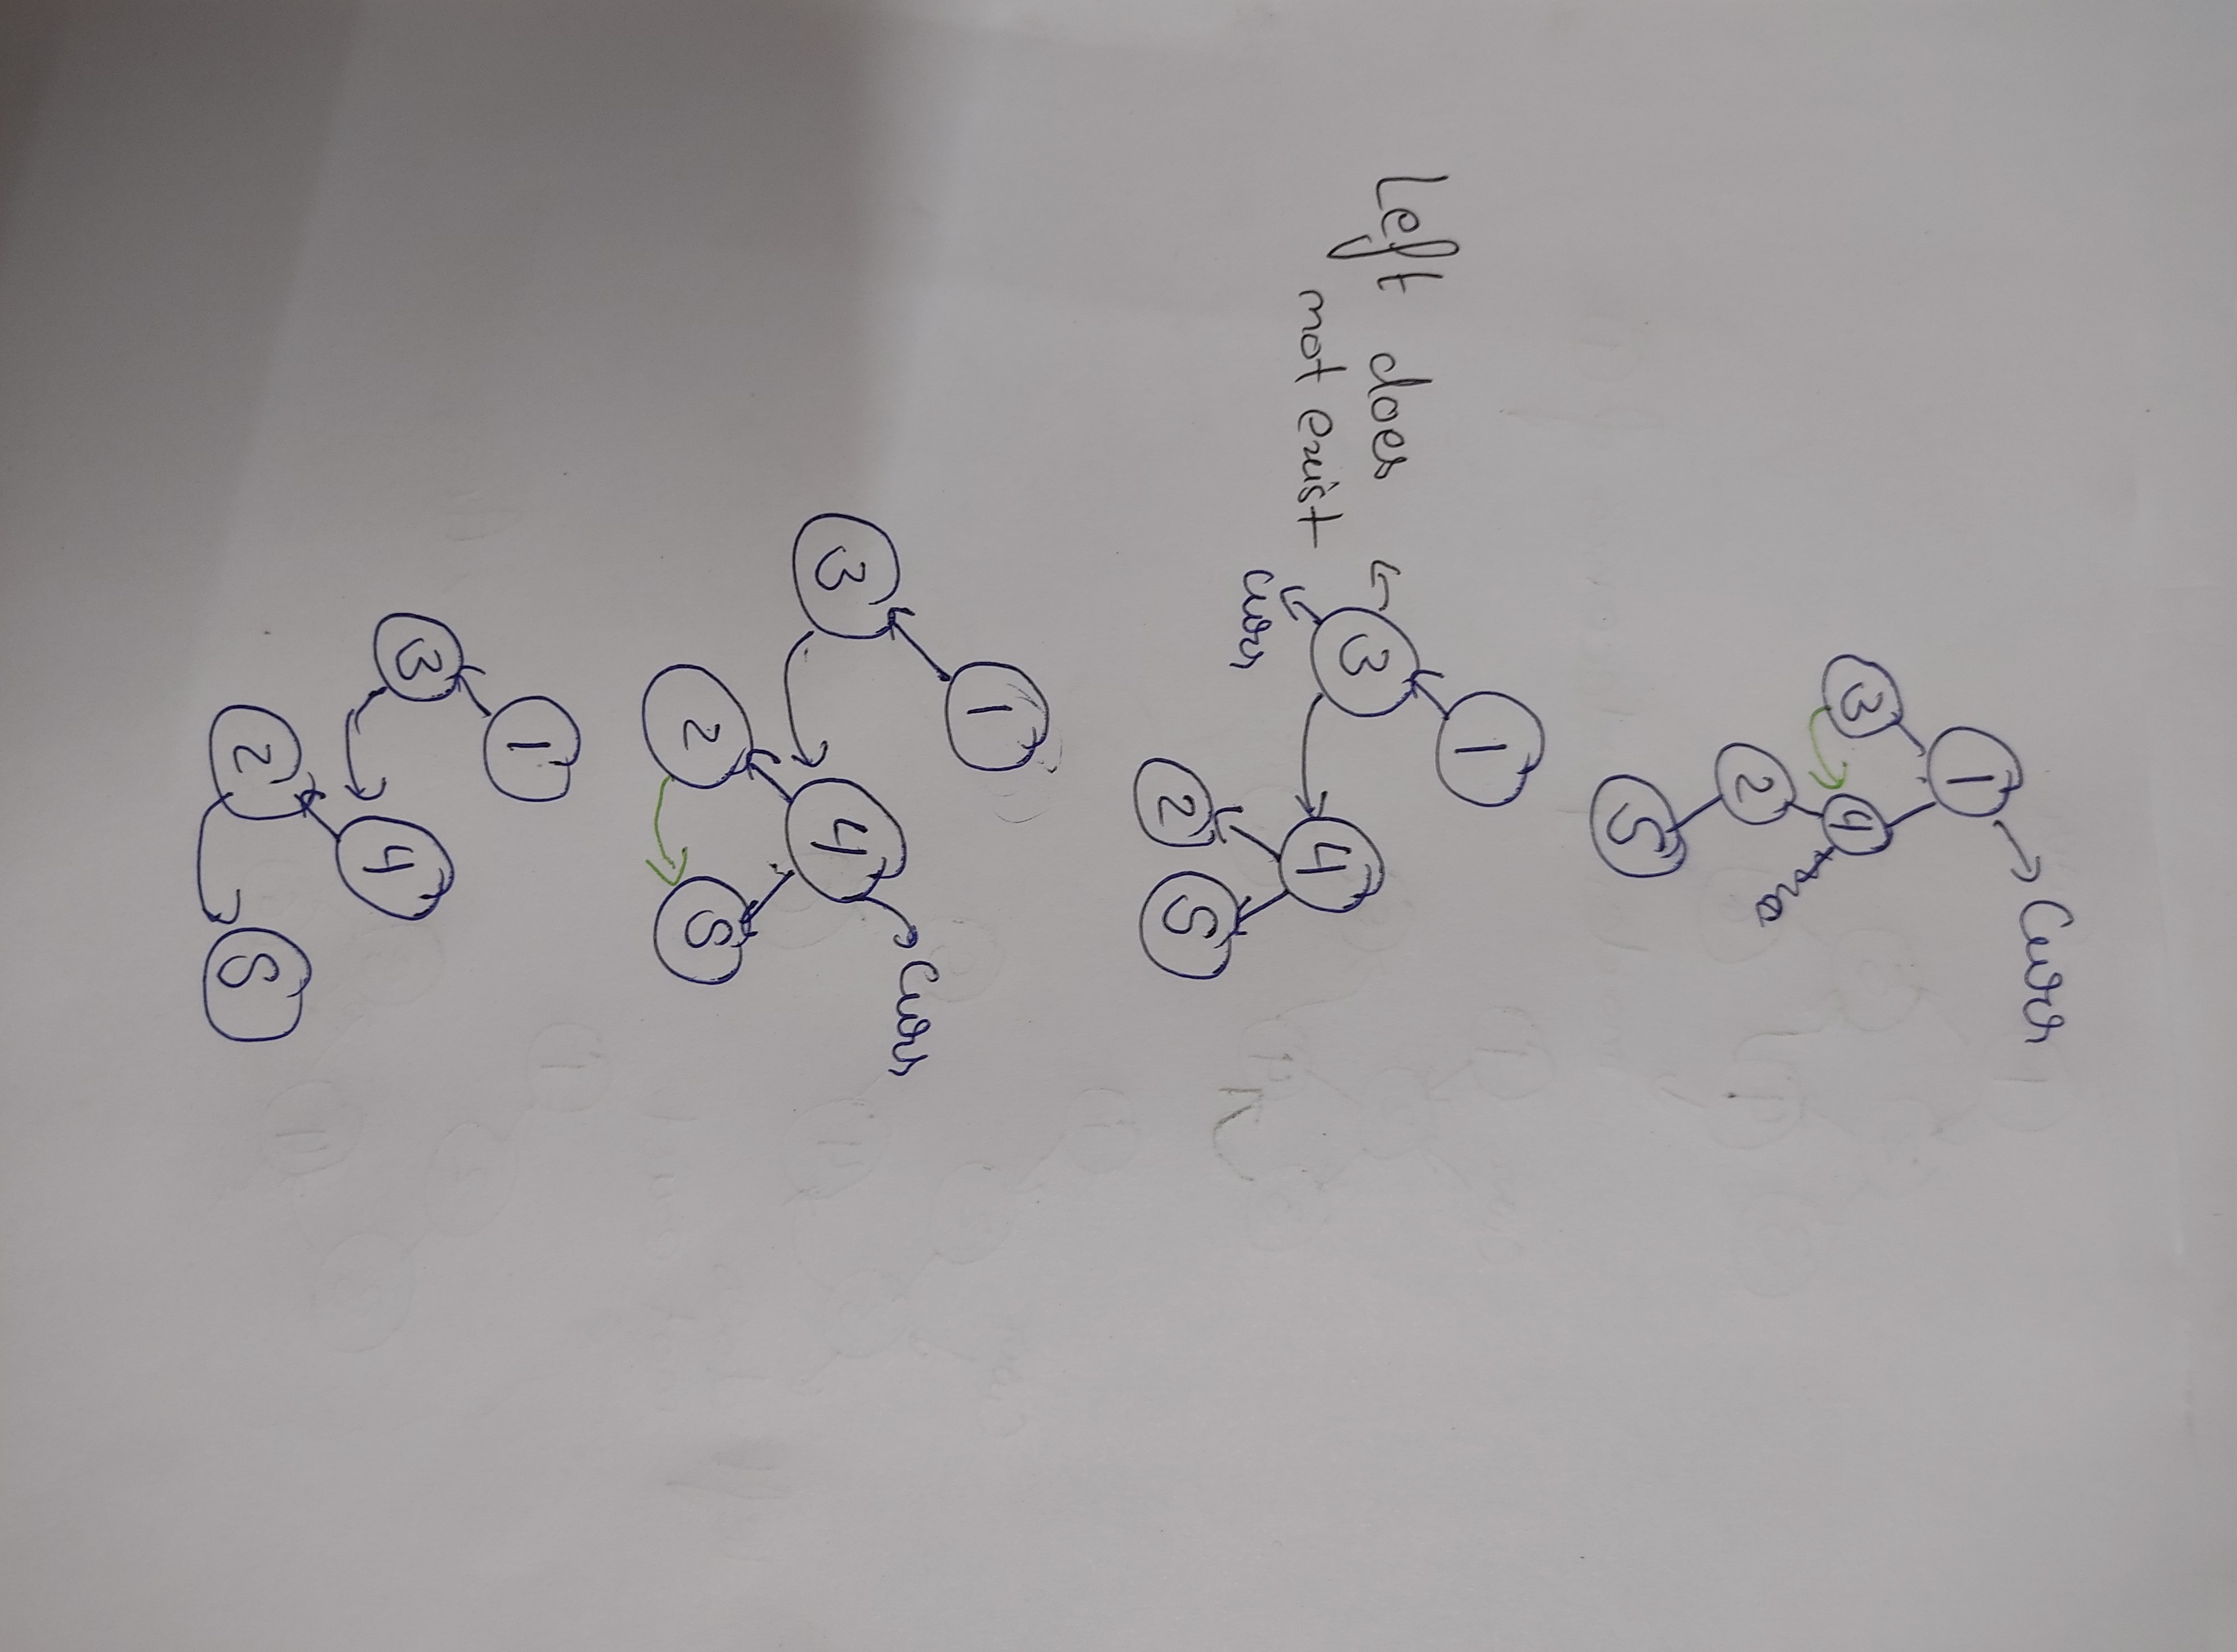 Curr
1
3 4
2
5
1
Left does
3
4
not exist
Curr
2 5
1
Curr
3 4
2 5
1
3 4
2 5